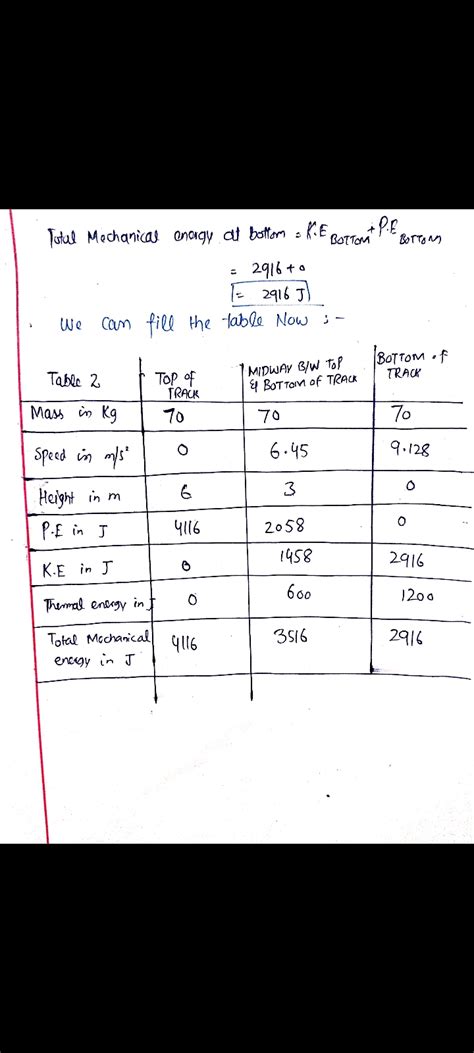 Total Mechanical energy at bottom = K.E BOTTOM + P.E BOTTOM
= 2916 + 0
= 2916 J
We can fill the table Now :-
Table 2 TOP of TRACK MIDWAY B/W TOP & BOTTOM OF TRACK BOTTOM OF TRACK
Mass in Kg 70 70 70
Speed in m/s² 0 6.45 9.128
Height in m 6 3 0
P.E in J 4116 2058 0
K.E in J 0 1458 2916
Thermal energy in J 0 600 1200
Total Mechanical energy in J 4116 3516 2916